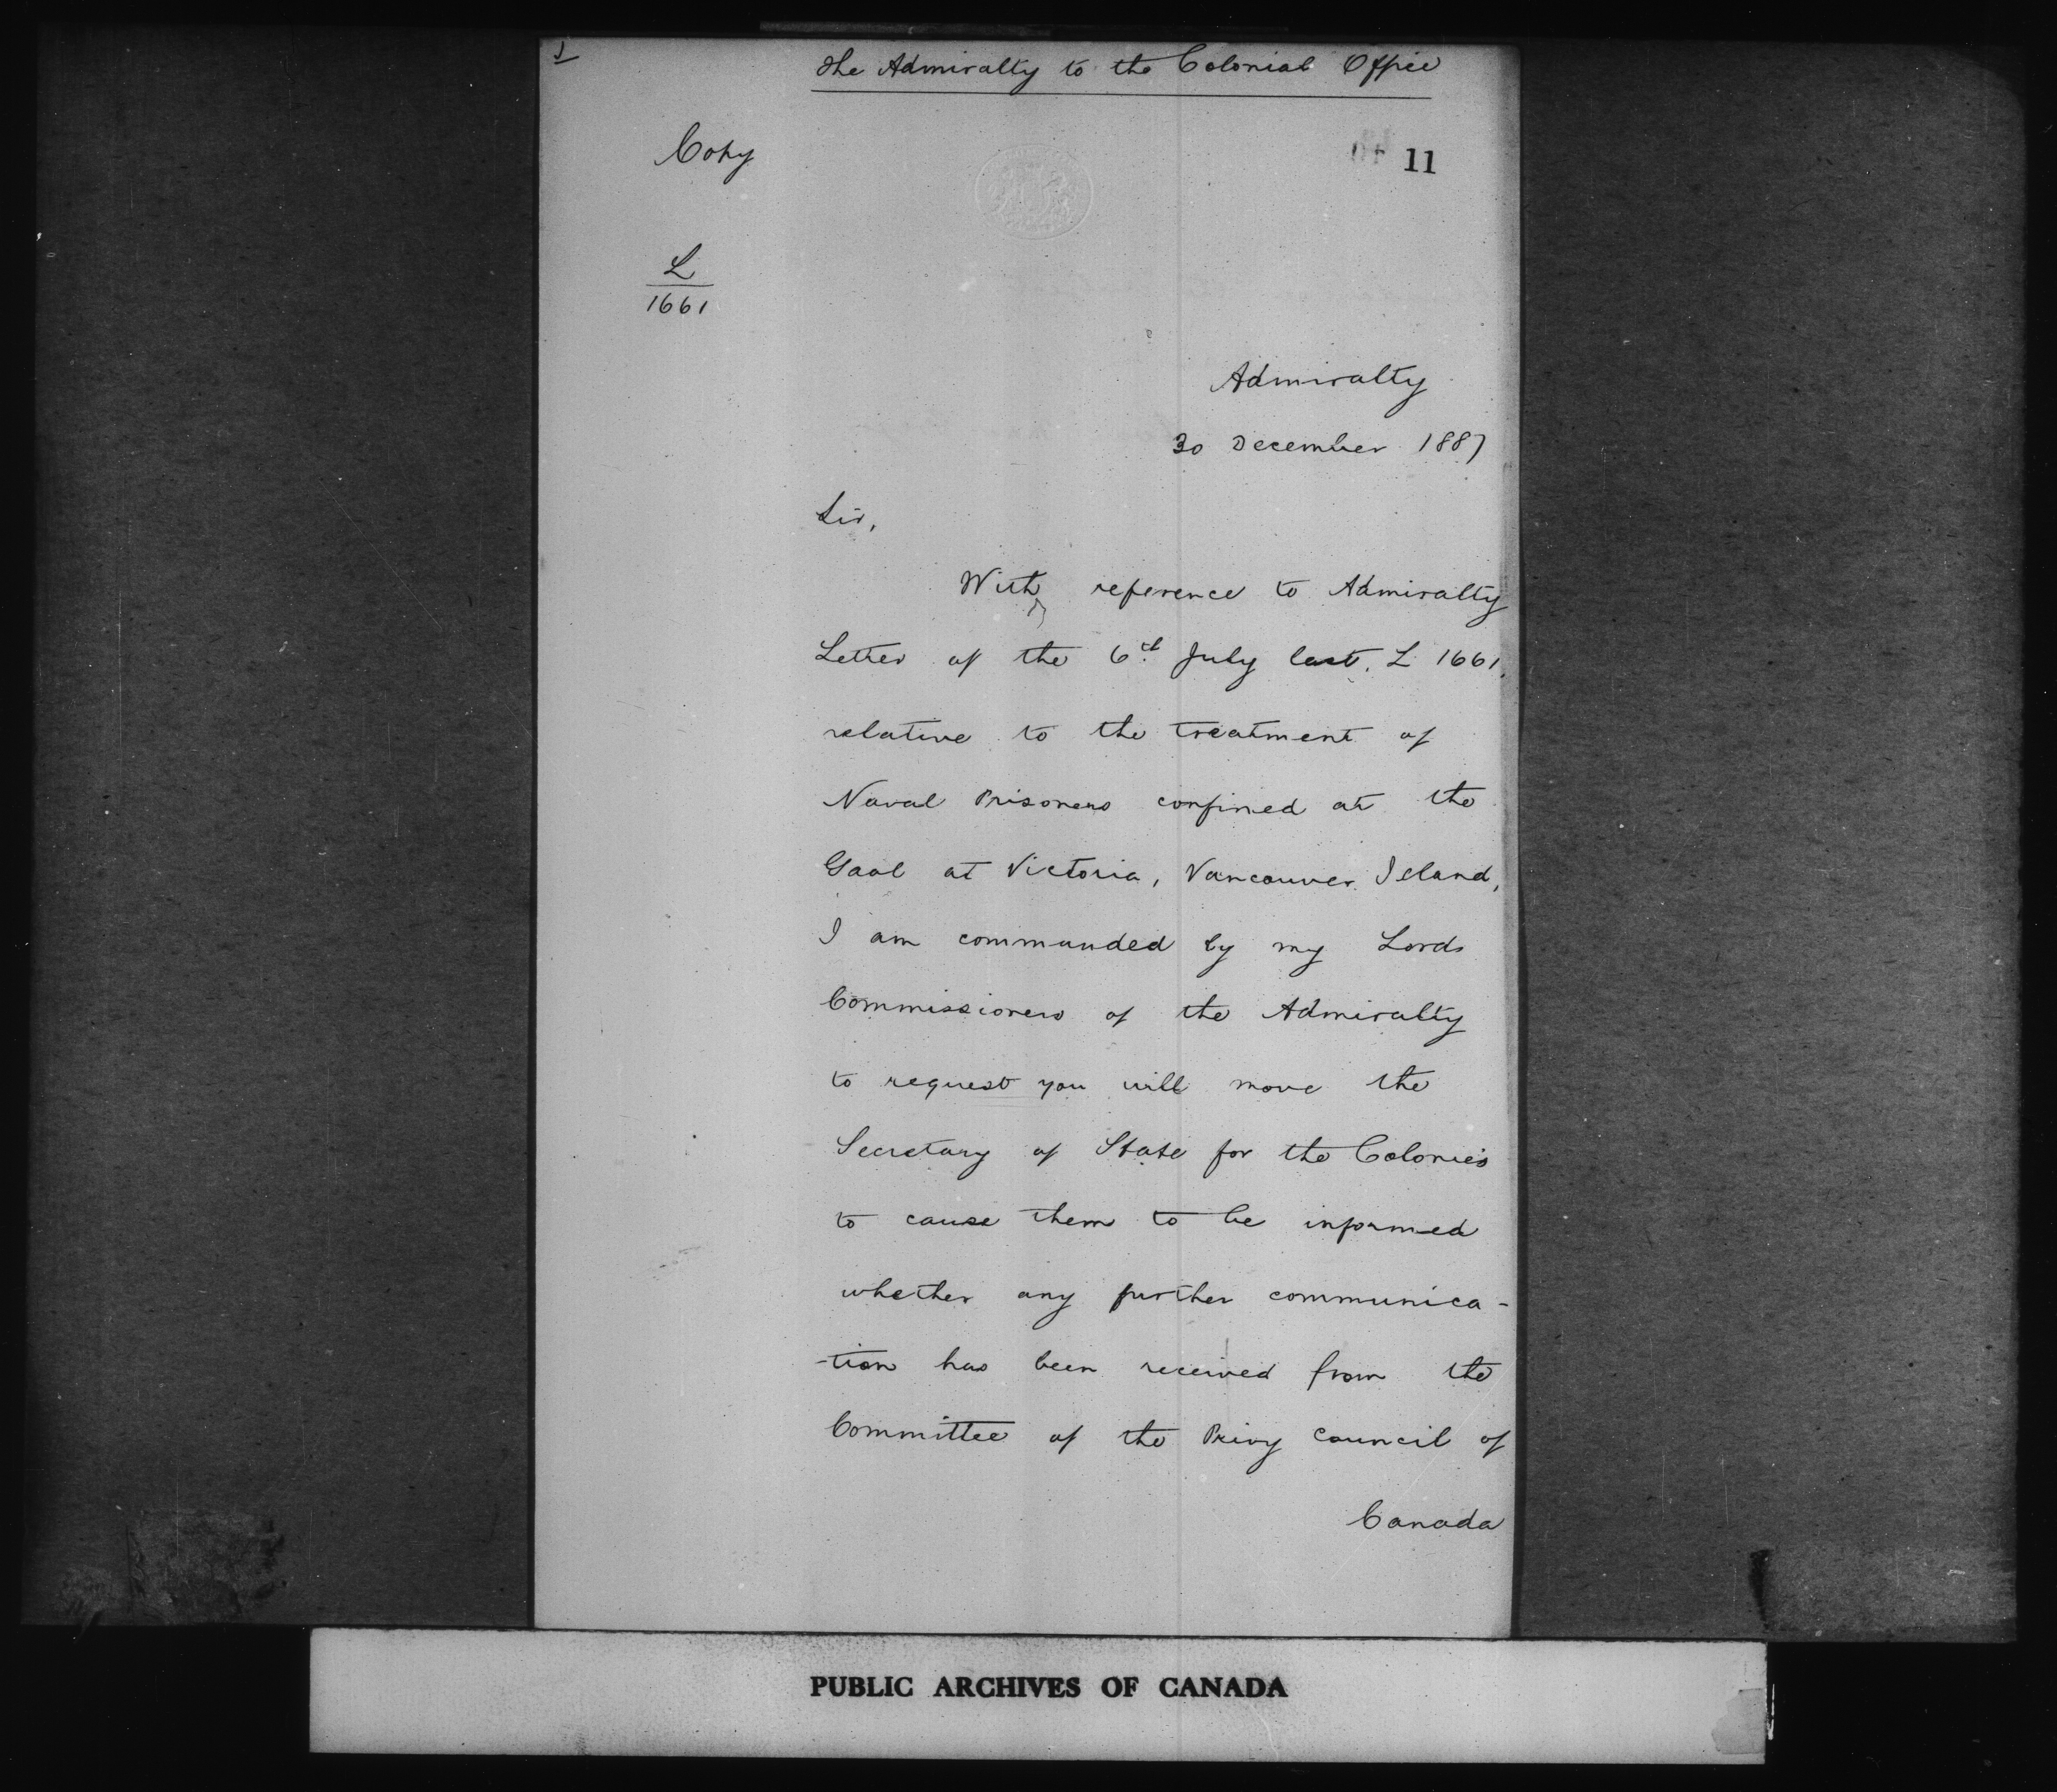 1
The Admiralty to the Colonial Office
Copy
11
L
1661
Admiralty
30 December 1887
Sir,
With reference to Admiralty
Letter of the 6th July last, L 1661,
relative to the treatment of
Naval Prisoners confined at the
Gaol at Victoria, Vancouver Island,
I am commanded by my Lords
Commissioners of the Admiralty
to request you will move the
Secretary of State for the Colonies
to cause them to be informed
whether any further communica-
-tion has been received from the
Committee of the Privy Council of
Canada
PUBLIC ARCHIVES OF CANADA